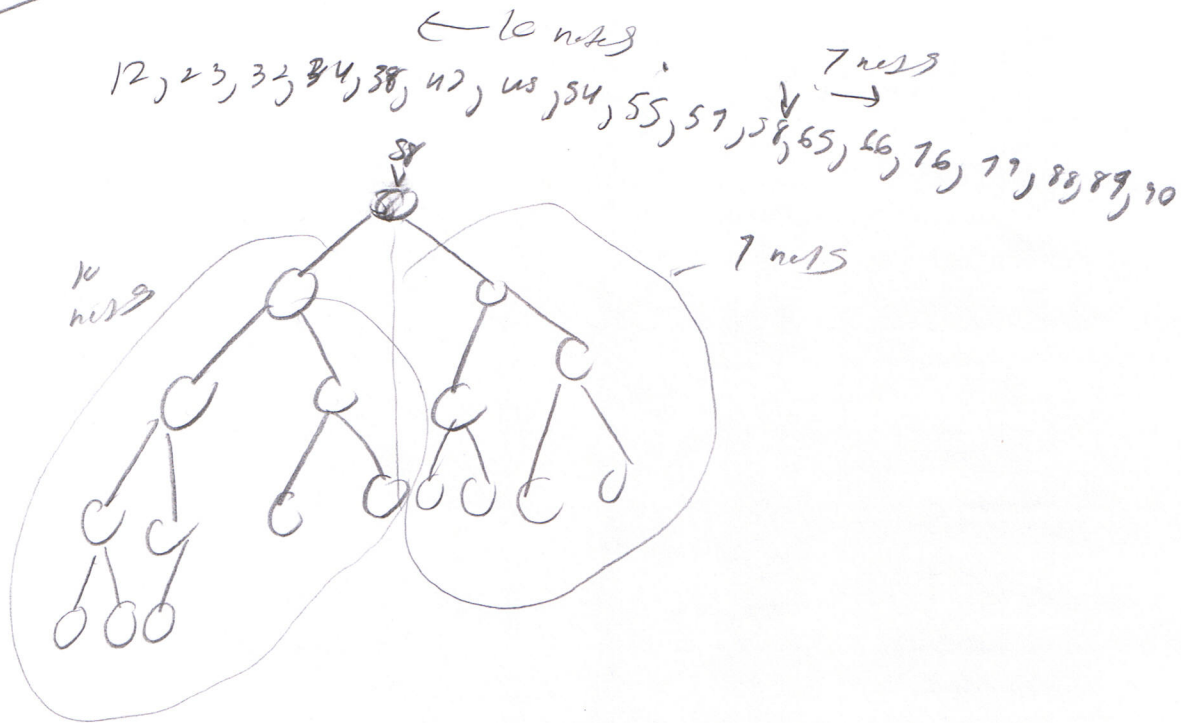 ← 10 nodes
7 nodes →
12, 23, 32, 34, 38, 47, 48, 54, 55, 57, 58, 65, 66, 76, 77, 88, 89, 90
58
10 nodes
7 nodes